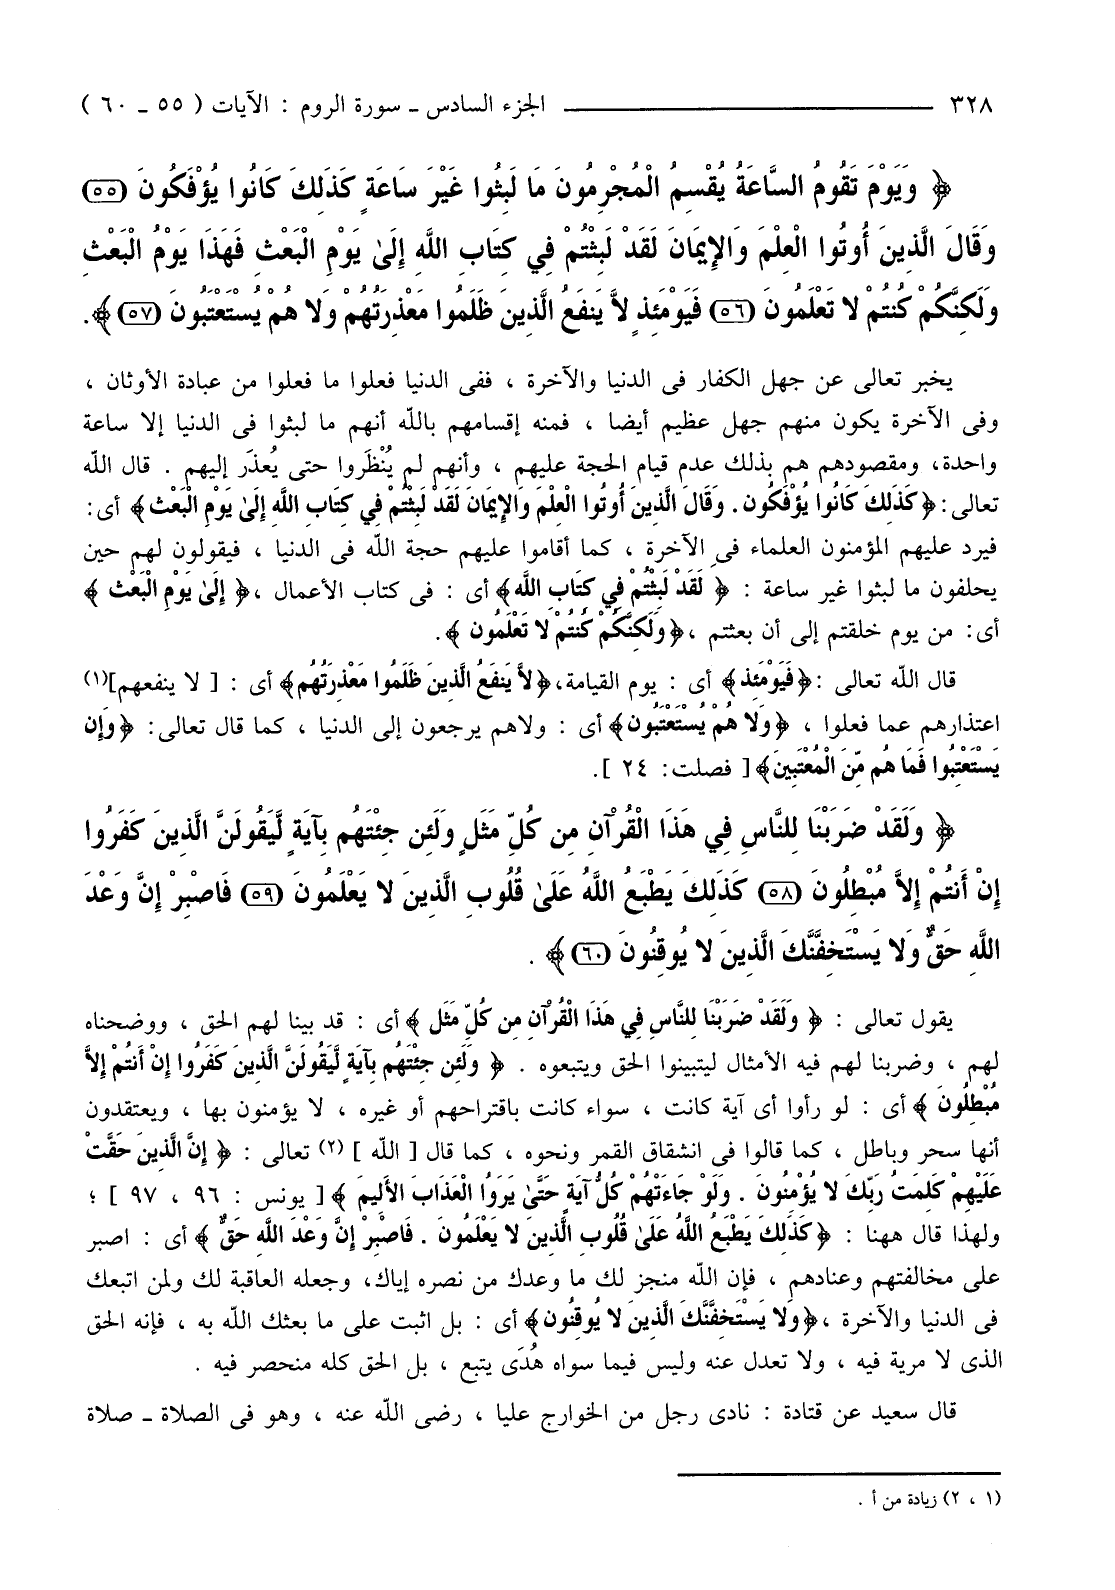 ٣٢٨ ـــــــــــــــ الجزء السادس ـ سورة الروم : الآيات ( ٥٥ ـ ٦٠ )
﴿ وَيَوْمَ تَقُومُ السَّاعَةُ يُقْسِمُ الْمُجْرِمُونَ مَا لَبِثُوا غَيْرَ سَاعَةٍ كَذَلِكَ كَانُوا يُؤْفَكُونَ (٥٥)
وَقَالَ الَّذِينَ أُوتُوا الْعِلْمَ وَالإِيمَانَ لَقَدْ لَبِثْتُمْ فِي كِتَابِ اللَّهِ إِلَىٰ يَوْمِ الْبَعْثِ فَهَذَا يَوْمُ الْبَعْثِ
وَلَكِنَّكُمْ كُنتُمْ لا تَعْلَمُونَ (٥٦) فَيَوْمَئِذٍ لاَّ يَنفَعُ الَّذِينَ ظَلَمُوا مَعْذِرَتُهُمْ وَلا هُمْ يُسْتَعْتَبُونَ (٥٧) ﴾.
يخبر تعالى عن جهل الكفار فى الدنيا والآخرة ، ففى الدنيا فعلوا ما فعلوا من عبادة الأوثان ،
وفى الآخرة يكون منهم جهل عظيم أيضا ، فمنه إقسامهم بالله أنهم ما لبثوا فى الدنيا إلا ساعة
واحدة، ومقصودهم هم بذلك عدم قيام الحجة عليهم ، وأنهم لم يُنْظَروا حتى يُعذَر إليهم . قال الله
تعالى: ﴿ كَذَلِكَ كَانُوا يُؤْفَكُون . وَقَالَ الَّذِينَ أُوتُوا الْعِلْمَ وَالإِيمَانَ لَقَدْ لَبِثْتُمْ فِي كِتَابِ اللَّهِ إِلَىٰ يَوْمِ الْبَعْث ﴾ أى:
فيرد عليهم المؤمنون العلماء فى الآخرة ، كما أقاموا عليهم حجة الله فى الدنيا ، فيقولون لهم حين
يحلفون ما لبثوا غير ساعة : ﴿ لَقَدْ لَبِثْتُمْ فِي كِتَابِ اللَّه ﴾ أى : فى كتاب الأعمال ، ﴿ إِلَىٰ يَوْمِ الْبَعْث ﴾
أى: من يوم خلقتم إلى أن بعثتم ، ﴿ وَلَكِنَّكُمْ كُنتُمْ لا تَعْلَمُون ﴾.
قال الله تعالى : ﴿ فَيَوْمَئِذ ﴾ أى : يوم القيامة، ﴿ لاَّ يَنفَعُ الَّذِينَ ظَلَمُوا مَعْذِرَتُهُم ﴾ أى : [ لا ينفعهم](١)
اعتذارهم عما فعلوا ، ﴿ وَلا هُمْ يُسْتَعْتَبُون ﴾ أى : ولاهم يرجعون إلى الدنيا ، كما قال تعالى: ﴿ وَإِن
يَسْتَعْتِبُوا فَمَا هُم مِّنَ الْمُعْتَبِينَ ﴾ [ فصلت: ٢٤ ].
﴿ وَلَقَدْ ضَرَبْنَا لِلنَّاسِ فِي هَذَا الْقُرْآنِ مِن كُلِّ مَثَلٍ وَلَئِن جِئْتَهُم بِآيَةٍ لَّيَقُولَنَّ الَّذِينَ كَفَرُوا
إِنْ أَنتُمْ إِلاَّ مُبْطِلُونَ (٥٨) كَذَلِكَ يَطْبَعُ اللَّهُ عَلَىٰ قُلُوبِ الَّذِينَ لا يَعْلَمُونَ (٥٩) فَاصْبِرْ إِنَّ وَعْدَ
اللَّهِ حَقٌّ وَلا يَسْتَخِفَّنَّكَ الَّذِينَ لا يُوقِنُونَ (٦٠) ﴾ .
يقول تعالى : ﴿ وَلَقَدْ ضَرَبْنَا لِلنَّاسِ فِي هَذَا الْقُرْآنِ مِن كُلِّ مَثَل ﴾ أى : قد بينا لهم الحق ، ووضحناه
لهم ، وضربنا لهم فيه الأمثال ليتبينوا الحق ويتبعوه . ﴿ وَلَئِن جِئْتَهُم بِآيَةٍ لَّيَقُولَنَّ الَّذِينَ كَفَرُوا إِنْ أَنتُمْ إِلاَّ
مُبْطِلُونَ ﴾ أى : لو رأوا أى آية كانت ، سواء كانت باقتراحهم أو غيره ، لا يؤمنون بها ، ويعتقدون
أنها سحر وباطل ، كما قالوا فى انشقاق القمر ونحوه ، كما قال [ الله ] (٢) تعالى : ﴿ إِنَّ الَّذِينَ حَقَّتْ
عَلَيْهِمْ كَلِمَتُ رَبِّكَ لا يُؤْمِنُونَ . وَلَوْ جَاءَتْهُمْ كُلُّ آيَةٍ حَتَّىٰ يَرَوُا الْعَذَابَ الأَلِيمَ ﴾ [ يونس : ٩٦ ، ٩٧ ] ؛
ولهذا قال ههنا : ﴿ كَذَلِكَ يَطْبَعُ اللَّهُ عَلَىٰ قُلُوبِ الَّذِينَ لا يَعْلَمُونَ . فَاصْبِرْ إِنَّ وَعْدَ اللَّهِ حَقٌّ ﴾ أى : اصبر
على مخالفتهم وعنادهم ، فإن الله منجز لك ما وعدك من نصره إياك، وجعله العاقبة لك ولمن اتبعك
فى الدنيا والآخرة ، ﴿ وَلا يَسْتَخِفَّنَّكَ الَّذِينَ لا يُوقِنُون ﴾ أى : بل اثبت على ما بعثك الله به ، فإنه الحق
الذى لا مرية فيه ، ولا تعدل عنه وليس فيما سواه هُدَى يتبع ، بل الحق كله منحصر فيه .
قال سعيد عن قتادة : نادى رجل من الخوارج عليا ، رضى الله عنه ، وهو فى الصلاة ـ صلاة
(١ ، ٢) زيادة من أ .